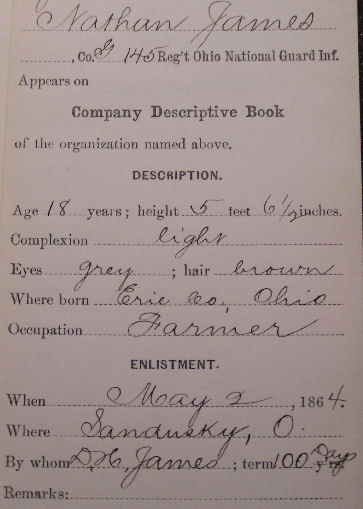 Nathan James
, Co. G 145 Reg't Ohio National Guard Inf.
Appears on
Company Descriptive Book
of the organization named above.
DESCRIPTION.
Age 18 years; height 5 feet 6 1/2 inches.
Complexion light
Eyes grey ; hair brown
Where born Erie Co., Ohio
Occupation Farmer
ENLISTMENT.
When May 2 , 1864.
Where Sandusky, O.
By whom D. H. James ; term 100 Days
Remarks: